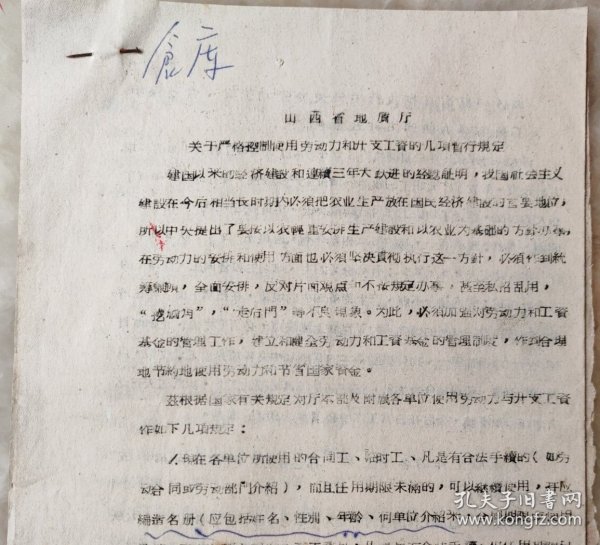 倉库
山西省地质厅
关于严格控制使用劳动力和开支工資的几项暂行規定
建国以来的经济建設和連續三年大跃进的经驗証明，我国社会主义
建設在今后相当长时期内必須把农业生产放在国民经济建設的首要地位，
所以中央提出了要按以农輕重安排生产建設和以农业为基礎的方針
在劳动力的安排和使用方面也必須坚决貫彻执行这一方針，必須作到統
筹兼顾，全面安排，反对片面观点和不按規定办事，甚至私招乱用，
“挖墙角”，“走后門”等不良现象。为此，必须加强对劳动力和工資
基金的管理工作，建立和健全劳动力和工資基金的管理制度，作到合理
地节約地使用劳动力和节省国家資金。
茲根据国家有关規定对厅本部及附屬各单位使用劳动力与开支工資
作如下几項規定：
人現在各单位所使用的合同工、临时工、凡是有合法手續的（如劳
动合同或劳动部門介紹），而且任用期限未滿的，可以继續使用，
編造名册（应包括姓名、性别、年龄、何单位介紹来
孔夫子旧书网
www.kongfz.com